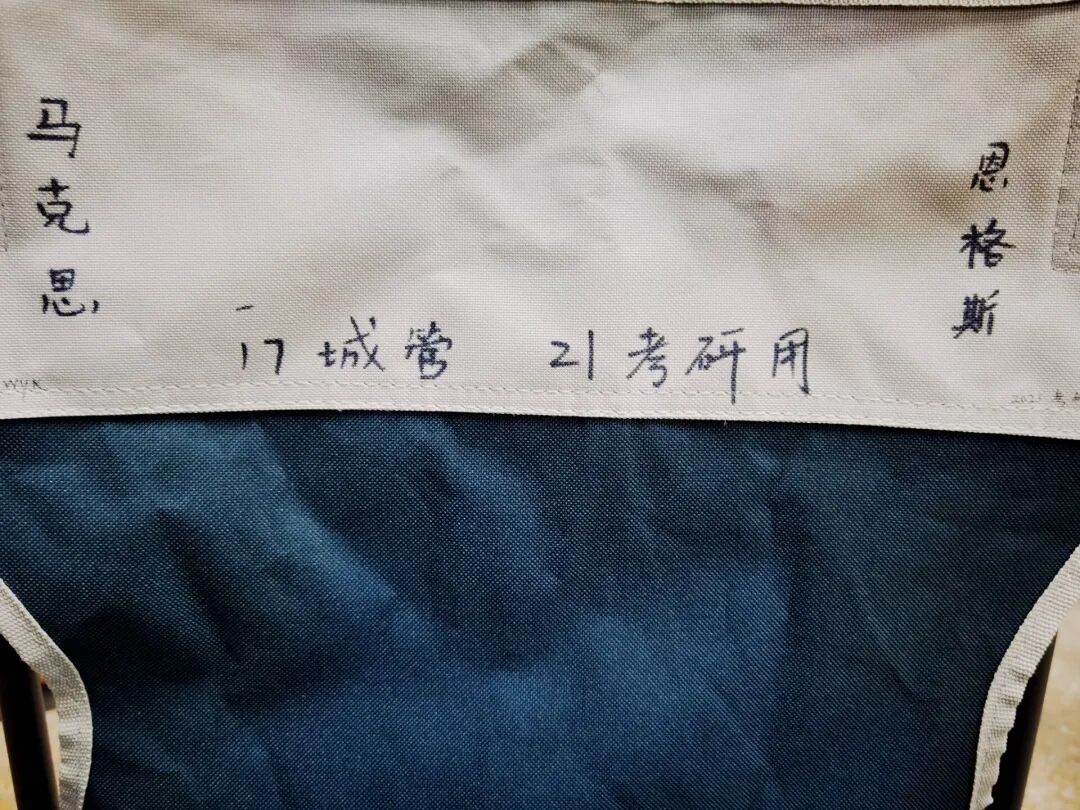 马克思
恩格斯
17城管 21考研用
wyx
2021考